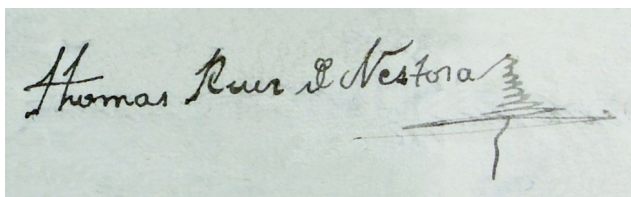 Thomas Ruiz de Nestosa